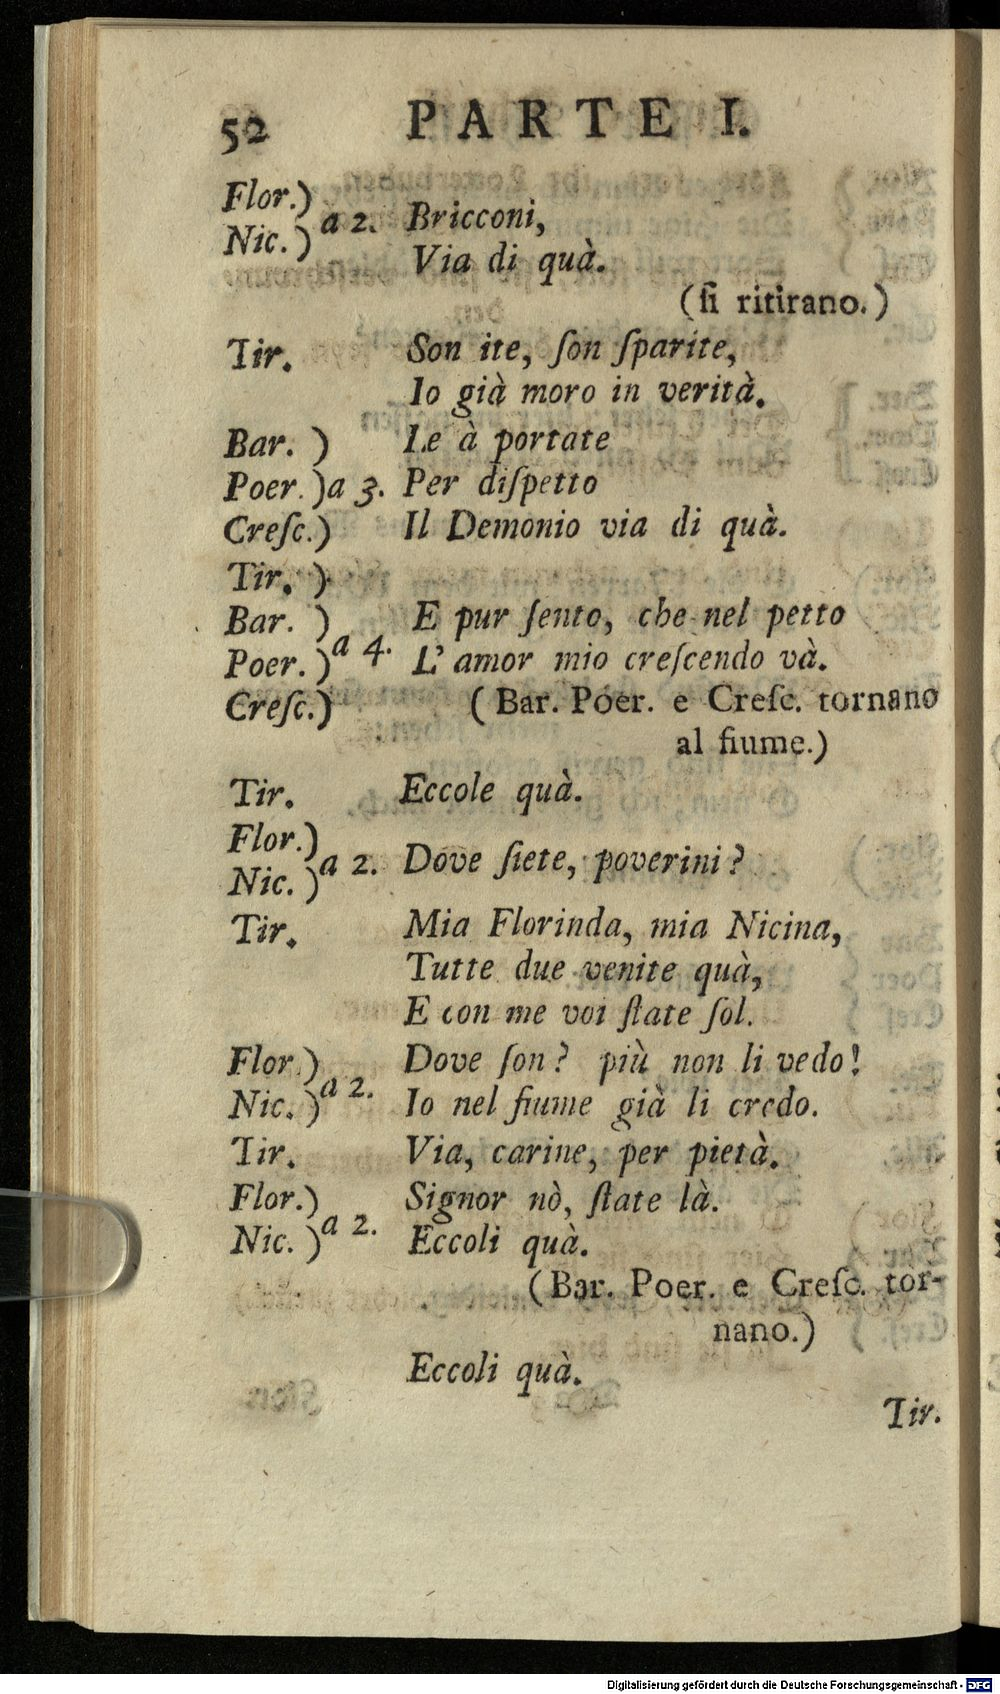 52 PARTE I.
Flor.)
Nic. ) a 2. Bricconi,
Via di quà.
(ſi ritirano.)
Tir. Son ite, ſon ſparite,
Io già moro in verità.
Bar. ) Le à portate
Poer. )a 3. Per diſpetto
Creſc.) Il Demonio via di quà.
Tir. )
Bar. ) E pur ſento, che nel petto
Poer. )a 4. L' amor mio creſcendo và.
Creſc.) (Bar. Poer. e Creſc. tornano
al fiume.)
Tir. Eccole quà.
Flor.)
Nic. )a 2. Dove ſiete, poverini?
Tir. Mia Florinda, mia Nicina,
Tutte due venite quà,
E con me voi ſtate ſol.
Flor.) Dove ſon? più non li vedo!
Nic. )a 2. Io nel fiume già li credo.
Tir. Via, carine, per pietà.
Flor.) Signor nò, ſtate là.
Nic. )a 2. Eccoli quà.
(Bar. Poer. e Creſc. tor-
nano.)
Eccoli quà.
Tir.
Digitalisierung gefördert durch die Deutsche Forschungsgemeinschaft - DFG